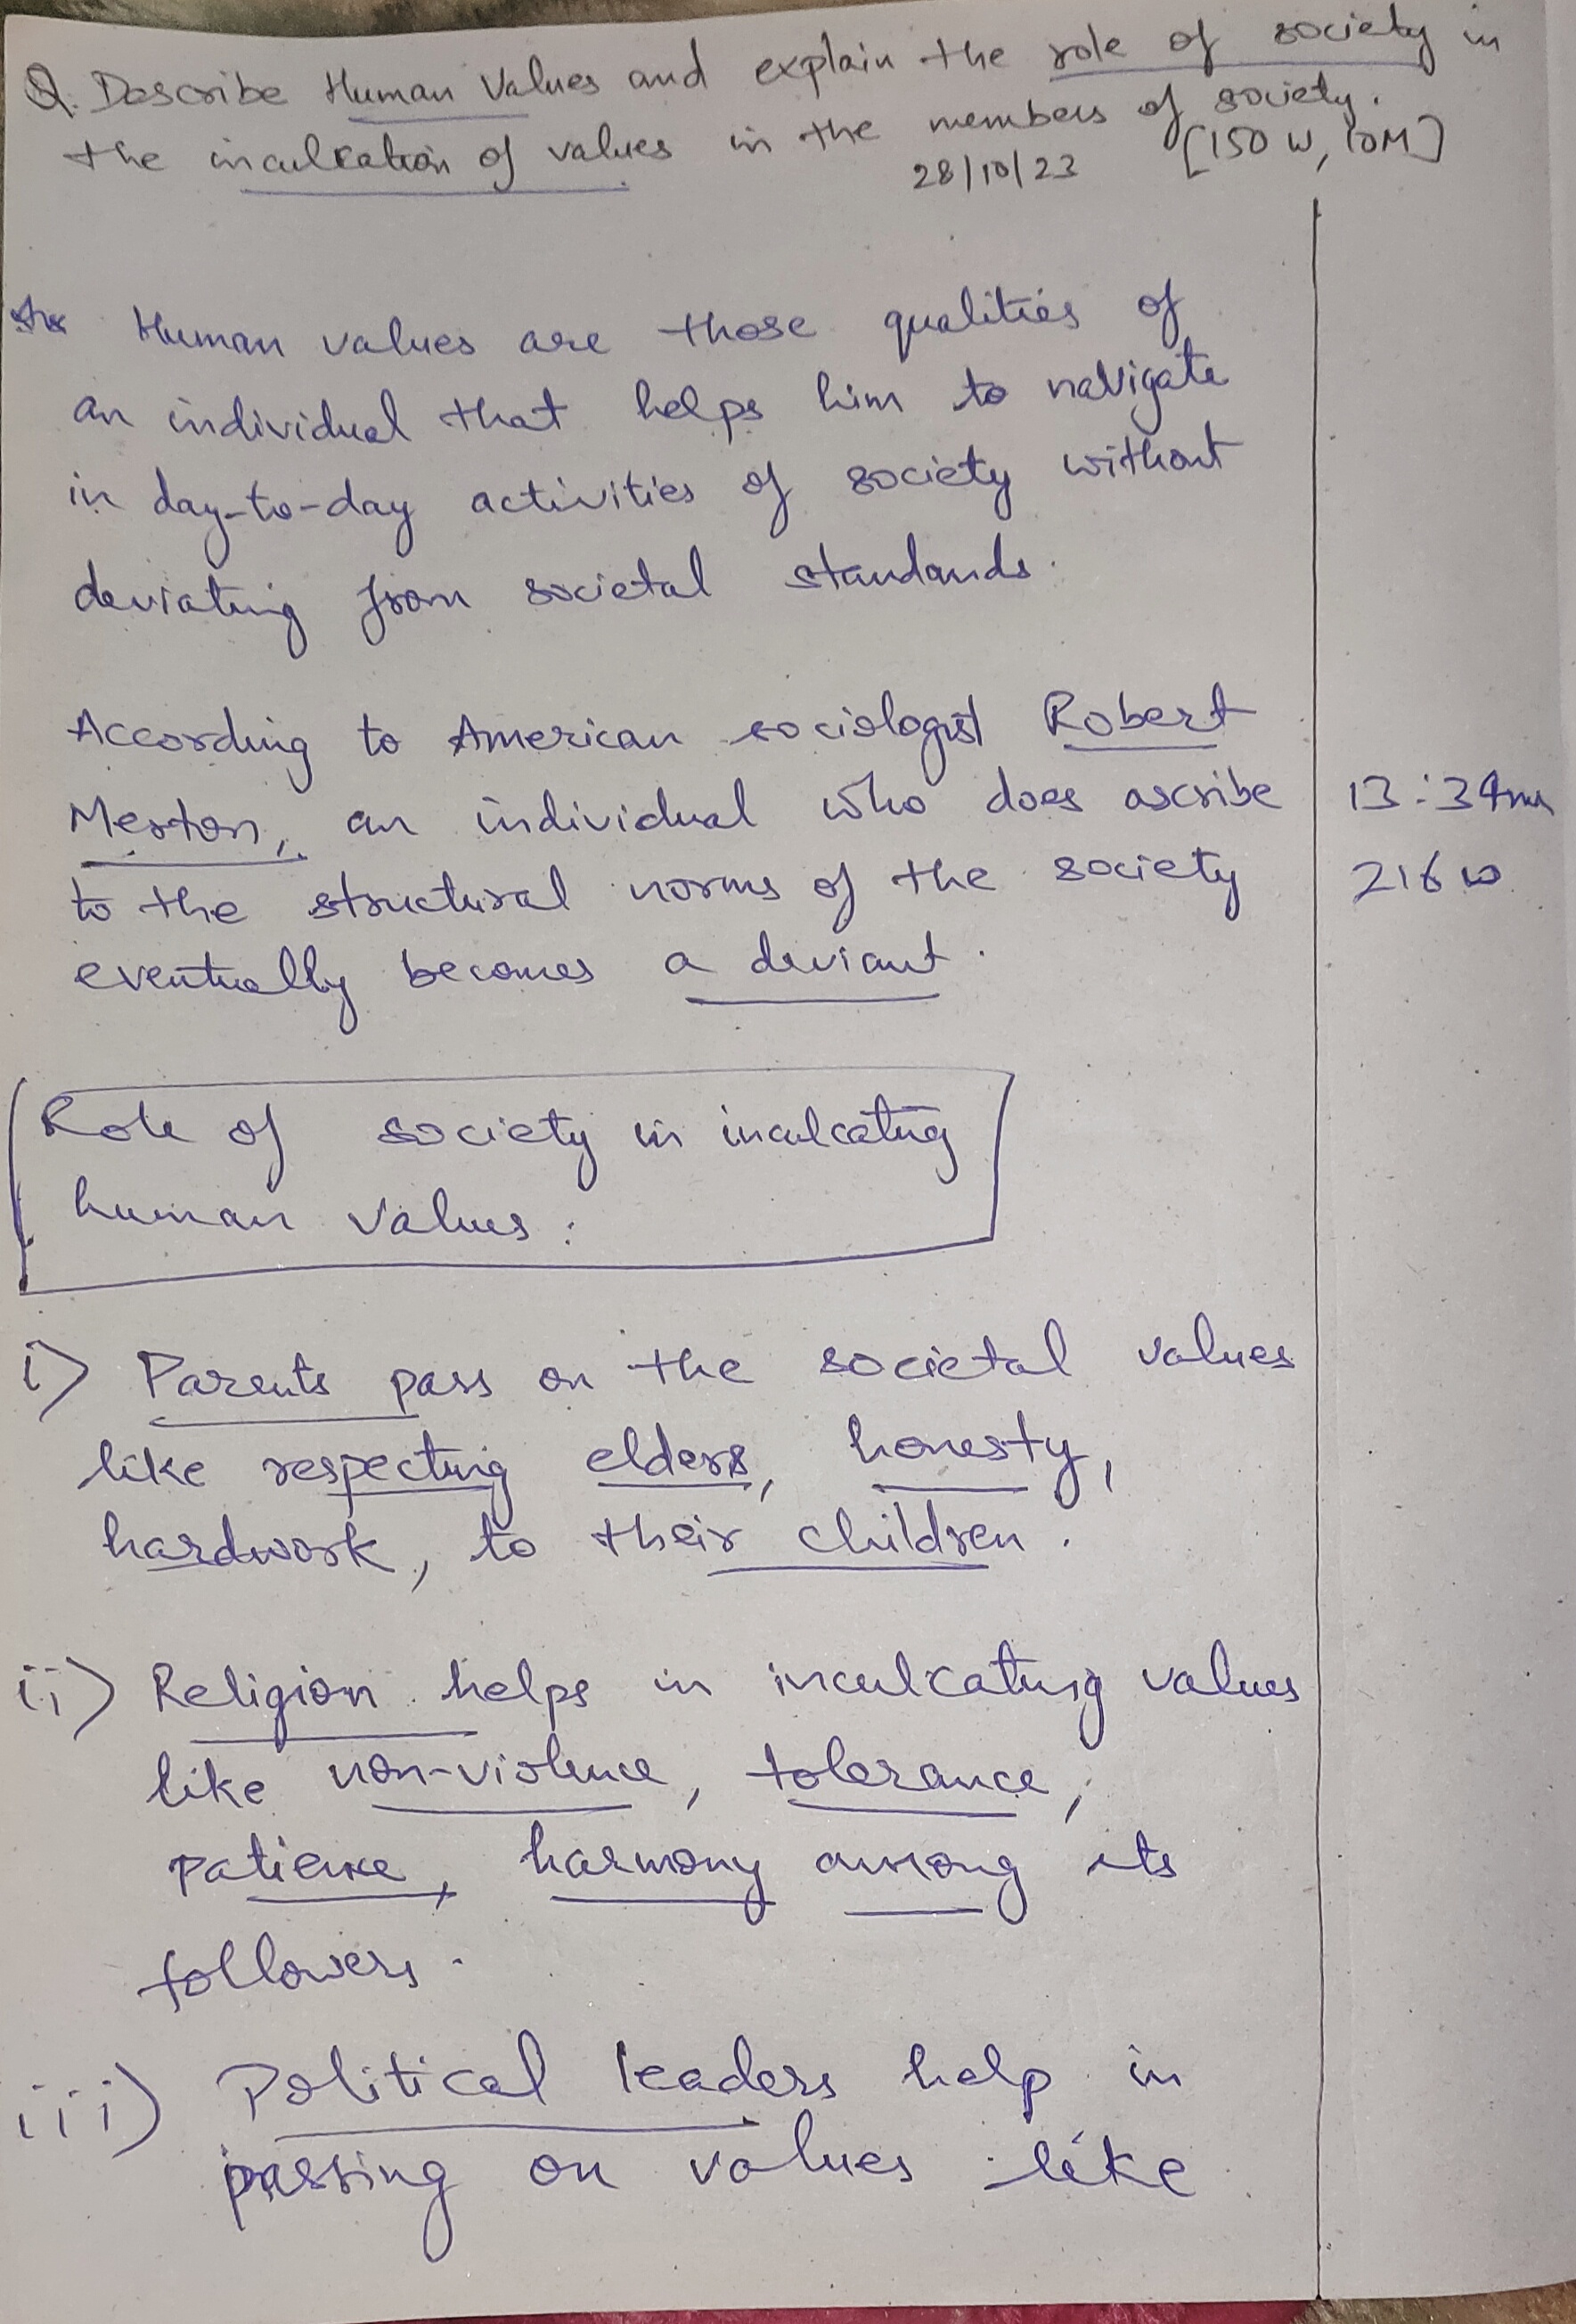 Q. Describe Human Values and explain the role of society in
the inculcation of values in the members of society.
28/10/23 [150 W, 10M]
Human values are those qualities of
an individual that helps him to navigate
in day-to-day activities of society without
deviating from societal standards.
According to American sociologist Robert
Merton, an individual who does ascribe
13:39mn
to the structural norms of the society
216 w
eventually becomes a deviant.
Role of society in inculcating
human values:
i) Parents pass on the societal values
like respecting elders, honesty,
hardwork, to their children.
ii) Religion helps in inculcating values
like non-violence, tolerance,
patience, harmony among its
followers.
iii) Political leaders help in
passing on values like